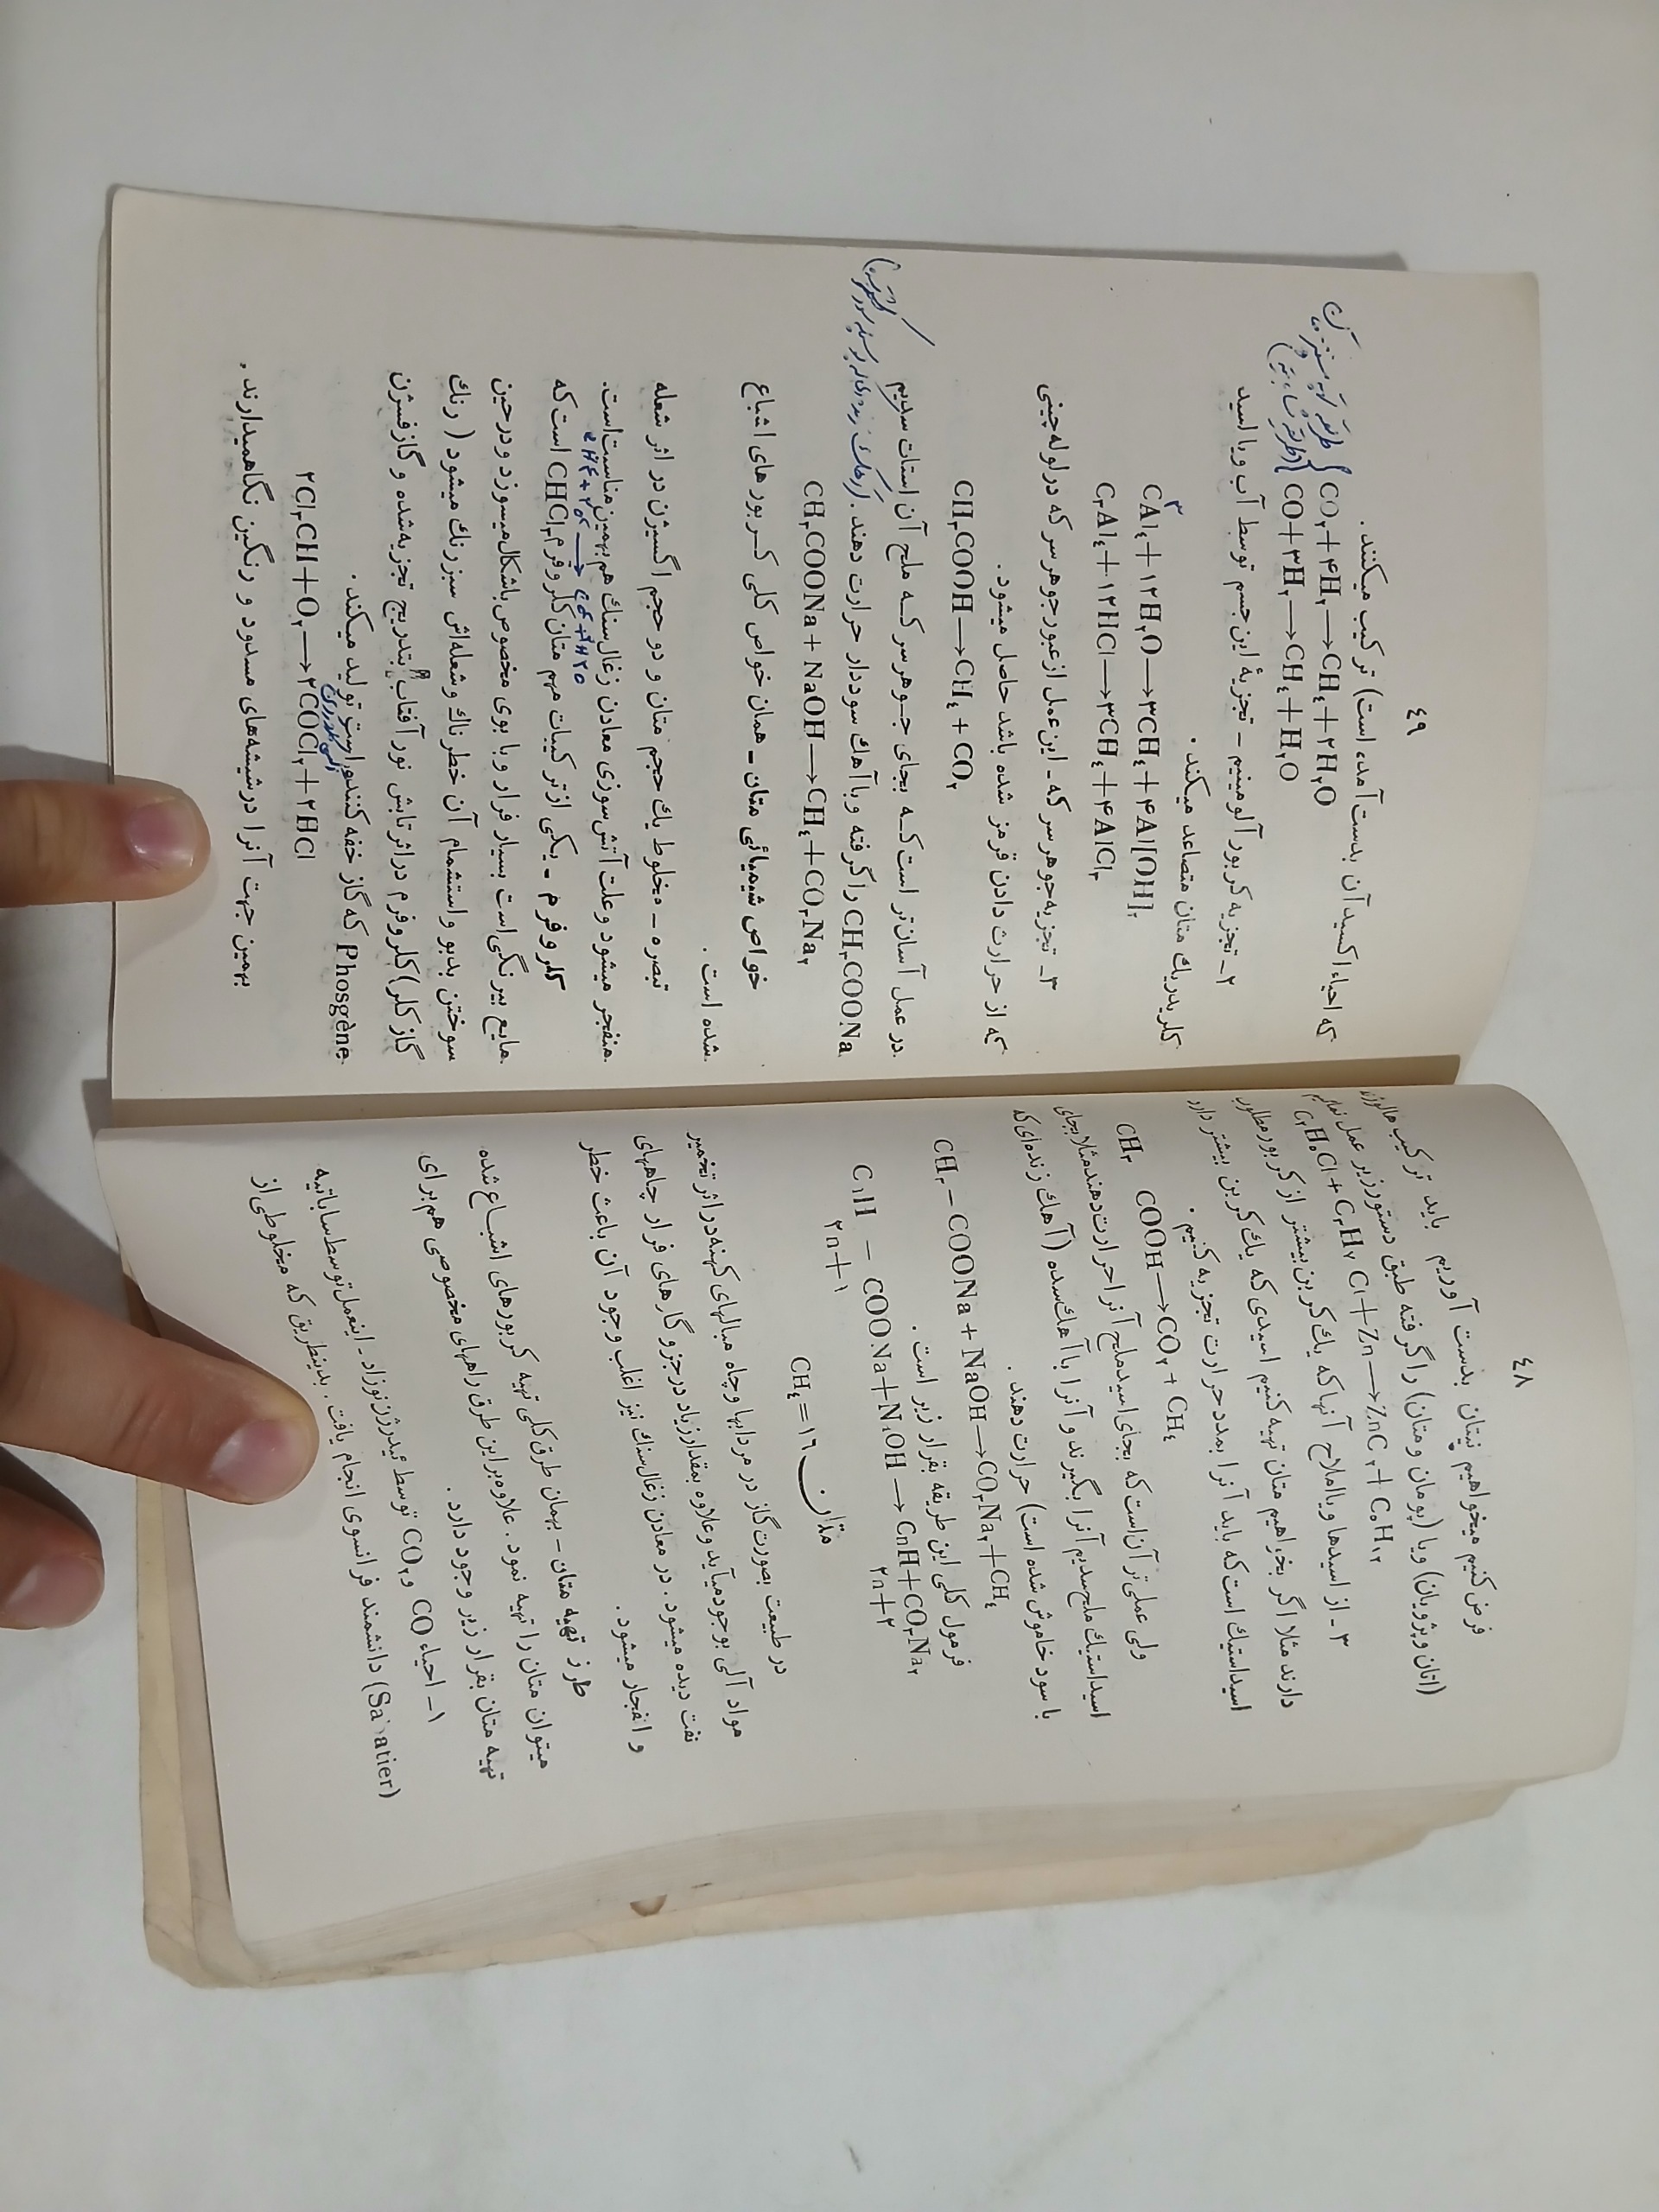 ٤٨
فرض کنیم میخواهیم نپتان بدست آوریم باید ترکیب هالوژنه
(اتان و پژوپان) ویا (بومان ومتان) را گرفته طبق دستور زیر عمل نمائیم
C۲H۵Cl + C۳H۷ Cl + Zn ⟶ ZnC ۲ + C۵H۱۲
۳ - از اسیدها ویا املاح آنها که یك کربن بیشتر از کربور مطلوب
دارند مثلا اگر بخواهیم متان تهیه کنیم اسیدی که یك کربن بیشتر دارد
اسیداستیك است که باید آنرا بمدد حرارت تجزیه کنیم .
CH۳ COOH ⟶ CO۲ + CH٤
ولی عملی تر آن است که بجای اسید ملح آنرا حرارت دهند مثلا بجای
اسیداستیك ملح سدیم آنرا بگیرند و آنرا با آهك سده (آهك زنده‌ای که
با سود خاموش شده است) حرارت دهند .
CH۳ – COONa + NaOH ⟶ CO۳Na۲ + CH٤
فرمول کلی این طریقه بقرار زیر است .
CnH – COONa + NaOH ⟶ CnH + CO۳Na۲
۲n+۱ ۲n+۲
متان CH٤ = ۱٦
در طبیعت بصورت گاز در مردابها وچاه مبالهای کهنه در اثر تخمیر
مواد آلی بوجود میآید وعلاوه بمقدار زیاد درجزو گازهای فرار چاههای
نفت دیده میشود . در معادن زغال سنك نیز اغلب وجود آن باعث خطر
و انفجار میشود .
طرز تهیه متان – بهمان طرق کلی تهیه کربورهای اشباع شده
میتوان متان را تهیه نمود . علاوه براین طرق راههای مخصوصی هم برای
تهیه متان بقرار زیر وجود دارد .
۱ – احیاء CO و CO۲ توسط ئیدرژن نوزاد . اینعمل توسط ساباتیه
(Sabatier) دانشمند فرانسوی انجام یافت . بدینطریق که مخلوطی از
٤٩
که احیاء اکسید آن بدست آمده است) ترکیب میکنند .
CO۲ + ۴H۲ ⟶ CH٤ + ۲H۲O
CO + ۳H۲ ⟶ CH٤ + H۲O
۲ـ تجزیه کربور آلومینیم – تجزیهٔ این جسم توسط آب ویا اسید
کلریدریك متان متصاعد میکند .
C۳Al٤ + ۱۲H۲O ⟶ ۳CH٤ + ۴Al[OH]۳
C۳Al٤ + ۱۲HCl ⟶ ۳CH٤ + ۴AlCl۳
۳ـ تجزیه جوهر سر که ـ این عمل از عبور جوهر سر که در لوله چینی
که از حرارت دادن قرمز شده باشد حاصل میشود .
CH۳COOH ⟶ CH٤ + CO۲
در عمل آسان‌تر است کـه بجای جـوهر سر کـه ملح آن استات سدیم
CH۳COONa را گرفته وبا آهك سوددار حرارت دهند .
CH۳COONa + NaOH ⟶ CH٤ + CO۳Na۲
خواص شیمیائی متان – همان خواص کلی کـربورهای اشباع
شده است .
تبصره – مخلوط یك حجم متان و دو حجم اکسیژن در اثر شعله
منفجر میشود وعلت آتش‌سوزی معادن زغال‌سنك هم بهمین مناسبت‌است.
CH۴ + ۲O۲ ⟶ CO۲ + ۲H۲O
کلروفرم – یکی از ترکیبات مهم متان کلروفرم CHCl۳ است که
مایع بیرنگی است بسیار فرار وبا بوی مخصوص باشکال میسوزد ودرحین
سوختن بدبو واستشمام آن خطرناك وشعله‌اش سبزرنك میشود ( رنك
گاز کلر) کلروفرم در اثر تابش نور آفتاب بتدریج تجزیه شده و گاز فسژن
Phosgène که گاز خفه کننده‌ایست تولید میکند .
۲Cl۳CH + O۲ ⟶ ۲COCl۲ + ۲HCl
بهمین جهت آنرا درشیشه‌های مسدود و رنگین نگاهمیدارند .